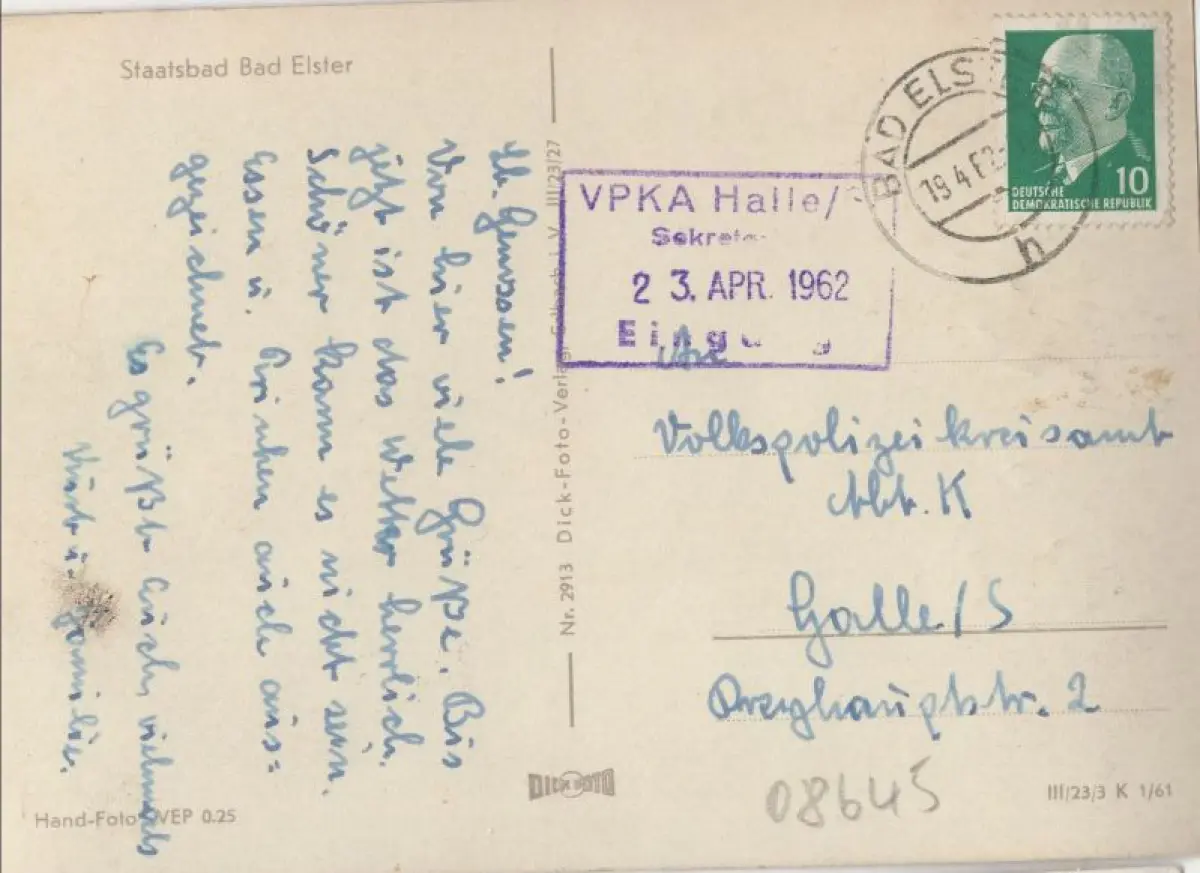 Staatsbad Bad Elster
Lb. Genossen!
Von hier viele Grüße. Bis
jetzt ist das Wetter herrlich.
Schöner kann es nicht sein.
Essen u. Trinken auch aus=
gezeichnet.
Es grüßt Euch vielmals
Kurt u. Familie.
Hand-Foto VEP 0.25
Nr. 2913 Dick-Foto-Verlag i. V. III/23/27
DICK FOTO
VPKA Halle/
Sekreta
2 3. APR. 1962
Eingang
BAD ELSTER
19.4.62
h
DEUTSCHE
DEMOKRATISCHE REPUBLIK
10
An
Volkspolizeikreisamt
Abt. K
Halle/S
Dreyhauptstr. 2
08645
III/23/3 K 1/61